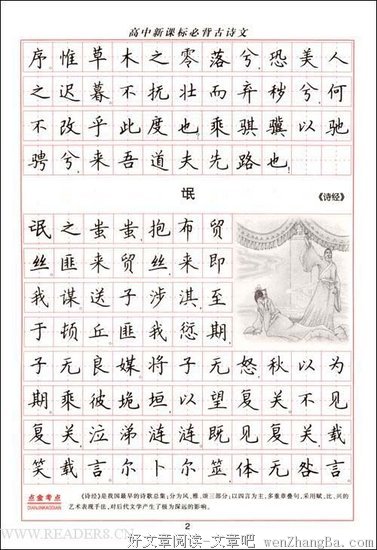 高中新课标必背古诗文
序,惟草木之零落兮,恐美人
之迟暮。不抚壮而弃秽兮,何
不改乎此度也?乘骐骥以驰
骋兮,来吾道夫先路也!
氓
《诗经》
氓之蚩蚩,抱布贸
丝。匪来贸丝,来即
我谋。送子涉淇,至
于顿丘。匪我愆期,
子无良媒。将子无怒,秋以为
期。乘彼垝垣,以望复关。不见
复关,泣涕涟涟。既见复关,载
笑载言。尔卜尔筮,体无咎言。
点金考点
DIANJINKAODIAN
《诗经》是我国最早的诗歌总集;分为风、雅、颂三部分;以四言为主,多重章叠句,采用赋、比、兴的
艺术表现手法,对后代文学产生了极为深远的影响。
2
WWW.READER8.CN
好文章阅读-文章吧 wenZhangBa.com